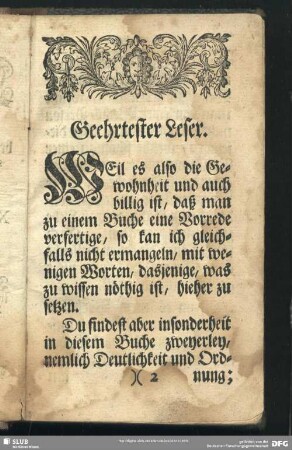 Geehrtester Leser.
WEil es also die Ge-
wohnheit und auch
billig ist, daß man
zu einem Buche eine Vorrede
verfertige, so kan ich gleich-
falls nicht ermangeln, mit we-
nigen Worten, dasjenige, was
zu wissen nöthig ist, hieher zu
setzen.
Du findest aber insonderheit
in diesem Buche zweyerley,
nemlich Deutlichkeit und Ord-
)( 2 nung;
SLUB
DFG